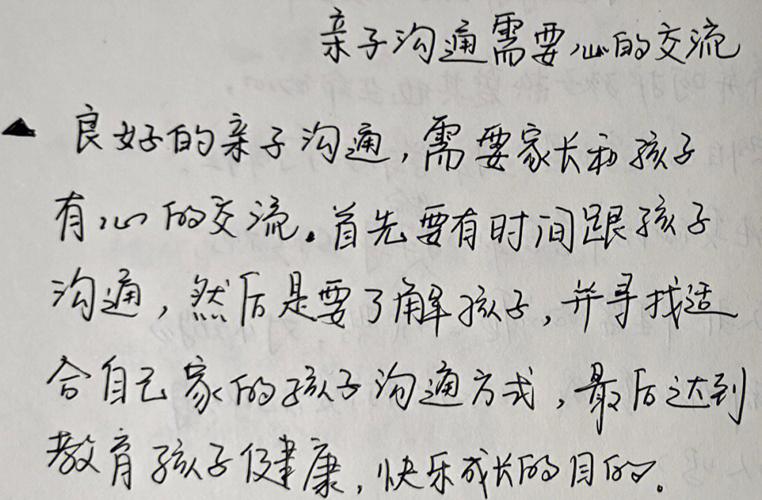 亲子沟通需要心的交流
▲ 良好的亲子沟通,需要家长和孩子
有心的交流。首先要有时间跟孩子
沟通,然后是要了解孩子,并寻找适
合自己家的孩子沟通方式,最后达到
教育孩子健康,快乐成长的目的。